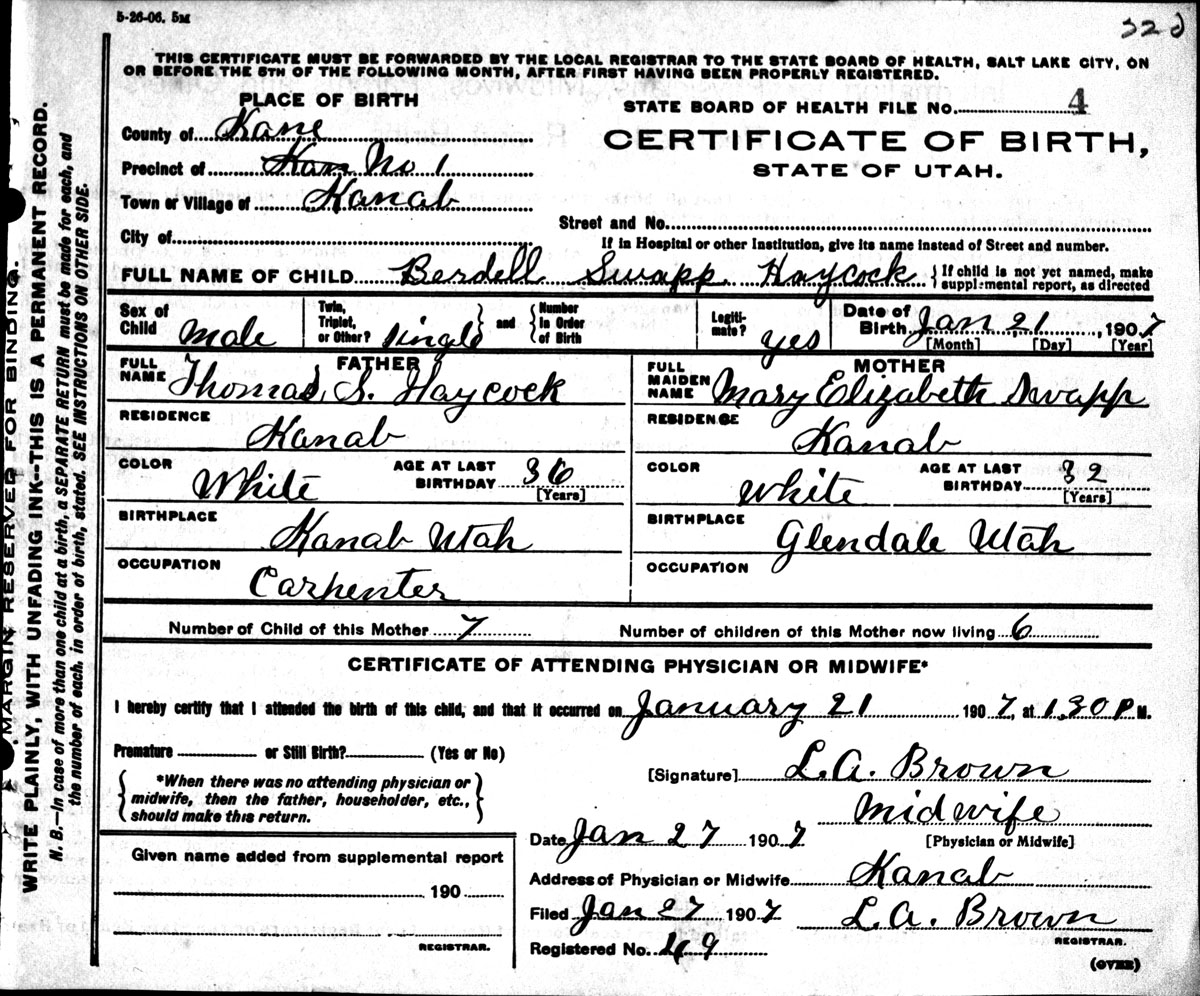 5-26-06. 5M
THIS CERTIFICATE MUST BE FORWARDED BY THE LOCAL REGISTRAR TO THE STATE BOARD OF HEALTH, SALT LAKE CITY, ON
OR BEFORE THE 5TH OF THE FOLLOWING MONTH, AFTER FIRST HAVING BEEN PROPERLY REGISTERED.
PLACE OF BIRTH
County of Kane
Precinct of Kan No 1
Town or Village of Kanab
City of
STATE BOARD OF HEALTH FILE NO. 4
CERTIFICATE OF BIRTH,
STATE OF UTAH.
Street and No.
If in Hospital or other Institution, give its name instead of Street and number.
FULL NAME OF CHILD Berdell Swapp Haycock
If child is not yet named, make
supplemental report, as directed
Sex of Child Male
Twin, Triplet, or Other? Single
and Number in Order of Birth
Legiti-mate? yes
Date of Birth Jan 21, 1907
[Month] [Day] [Year]
FATHER
FULL NAME Thomas S. Haycock
RESIDENCE Kanab
COLOR White
AGE AT LAST BIRTHDAY 36
[Years]
BIRTHPLACE Kanab Utah
OCCUPATION Carpenter
MOTHER
FULL MAIDEN NAME Mary Elizabeth Swapp
RESIDENCE Kanab
COLOR White
AGE AT LAST BIRTHDAY 32
[Years]
BIRTHPLACE Glendale Utah
OCCUPATION
Number of Child of this Mother 7
Number of children of this Mother now living 6
CERTIFICATE OF ATTENDING PHYSICIAN OR MIDWIFE*
I hereby certify that I attended the birth of this child, and that it occurred on January 21 1907, at 1.30 P M.
Premature or Still Birth? (Yes or No)
*When there was no attending physician or
midwife, then the father, householder, etc.,
should make this return.
[Signature] L.A. Brown
Midwife
[Physician or Midwife]
Date Jan 27 1907
Address of Physician or Midwife Kanab
Filed Jan 27 1907 L.A. Brown
REGISTRAR.
Registered No. 49
(OVER)
Given name added from supplemental report
190
REGISTRAR.
MARGIN RESERVED FOR BINDING.
WRITE PLAINLY, WITH UNFADING INK--THIS IS A PERMANENT RECORD.
N. B.—In case of more than one child at a birth, a SEPARATE RETURN must be made for each, and
the number of each, in order of birth, stated. SEE INSTRUCTIONS ON OTHER SIDE.